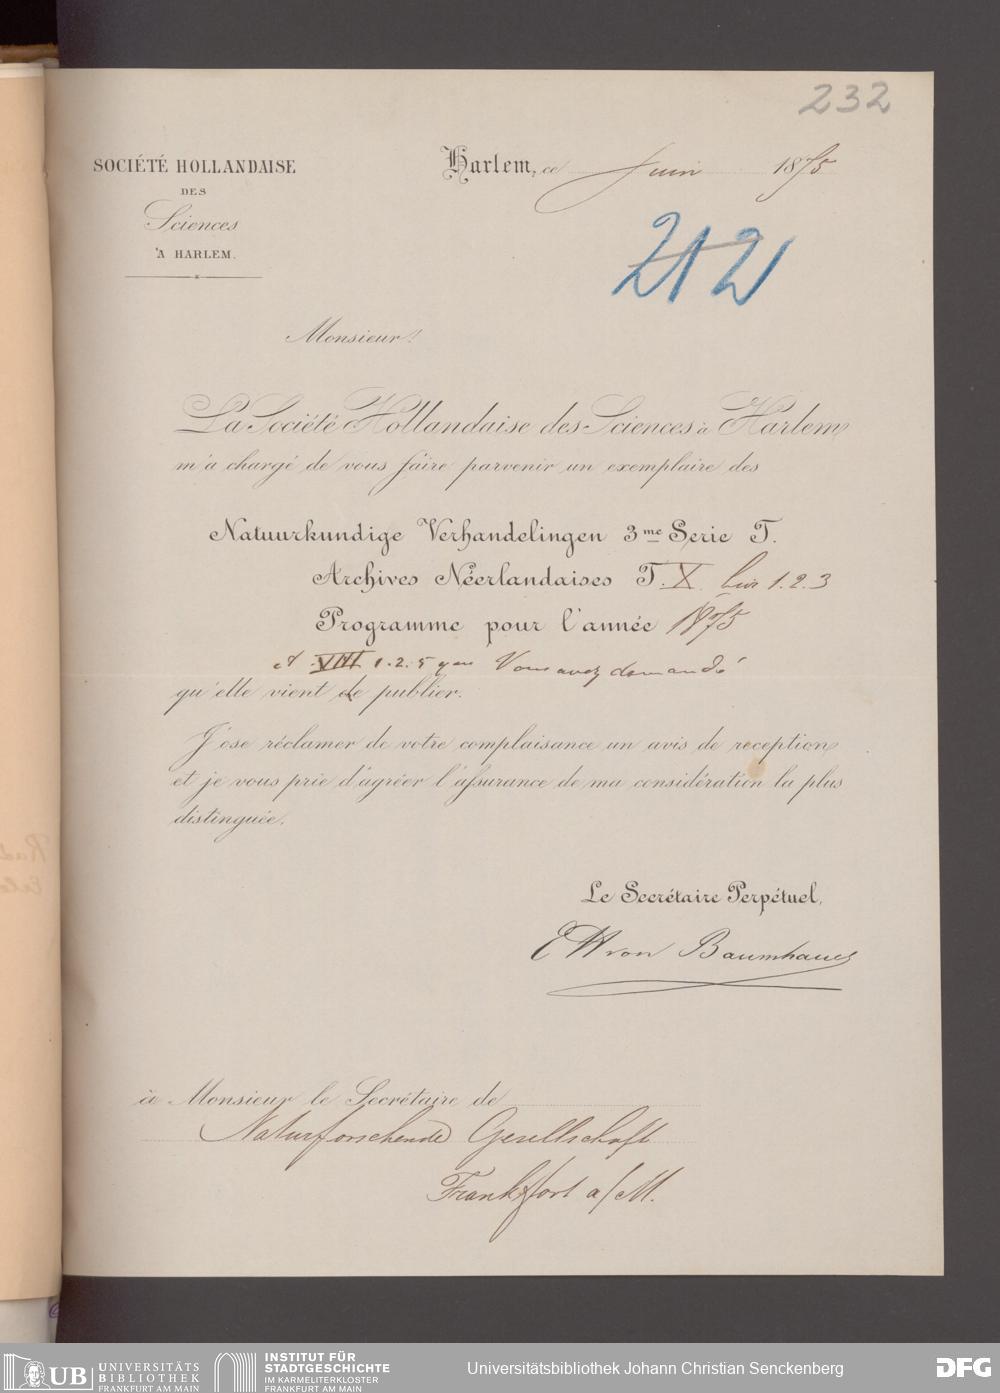 232
SOCIÉTÉ HOLLANDAISE
DES
Sciences
À HARLEM.
Harlem, ce Juin 1875
212
Monsieur!
La Société Hollandaise des Sciences à Harlem
m'a chargé de vous faire parvenir un exemplaire des
Natuurkundige Verhandelingen 3me Serie T.
Archives Néerlandaises T. X. Liv 1. 2. 3
Programme pour l'année 1875
et VIII 1. 2. 5 que Vous avez demandé
qu'elle vient de publier.
J'ose réclamer de votre complaisance un avis de reception
et je vous prie d'agréer l'assurance de ma considération la plus
distinguée.
Le Secrétaire Perpétuel,
EH von Baumhauer
à Monsieur le Secrétaire de
Naturforschende Gesellschaft
Frankfort a/M.
UB UNIVERSITÄTS
BIBLIOTHEK
FRANKFURT AM MAIN
INSTITUT FÜR
STADTGESCHICHTE
IM KARMELITERKLOSTER
FRANKFURT AM MAIN
Universitätsbibliothek Johann Christian Senckenberg
DFG